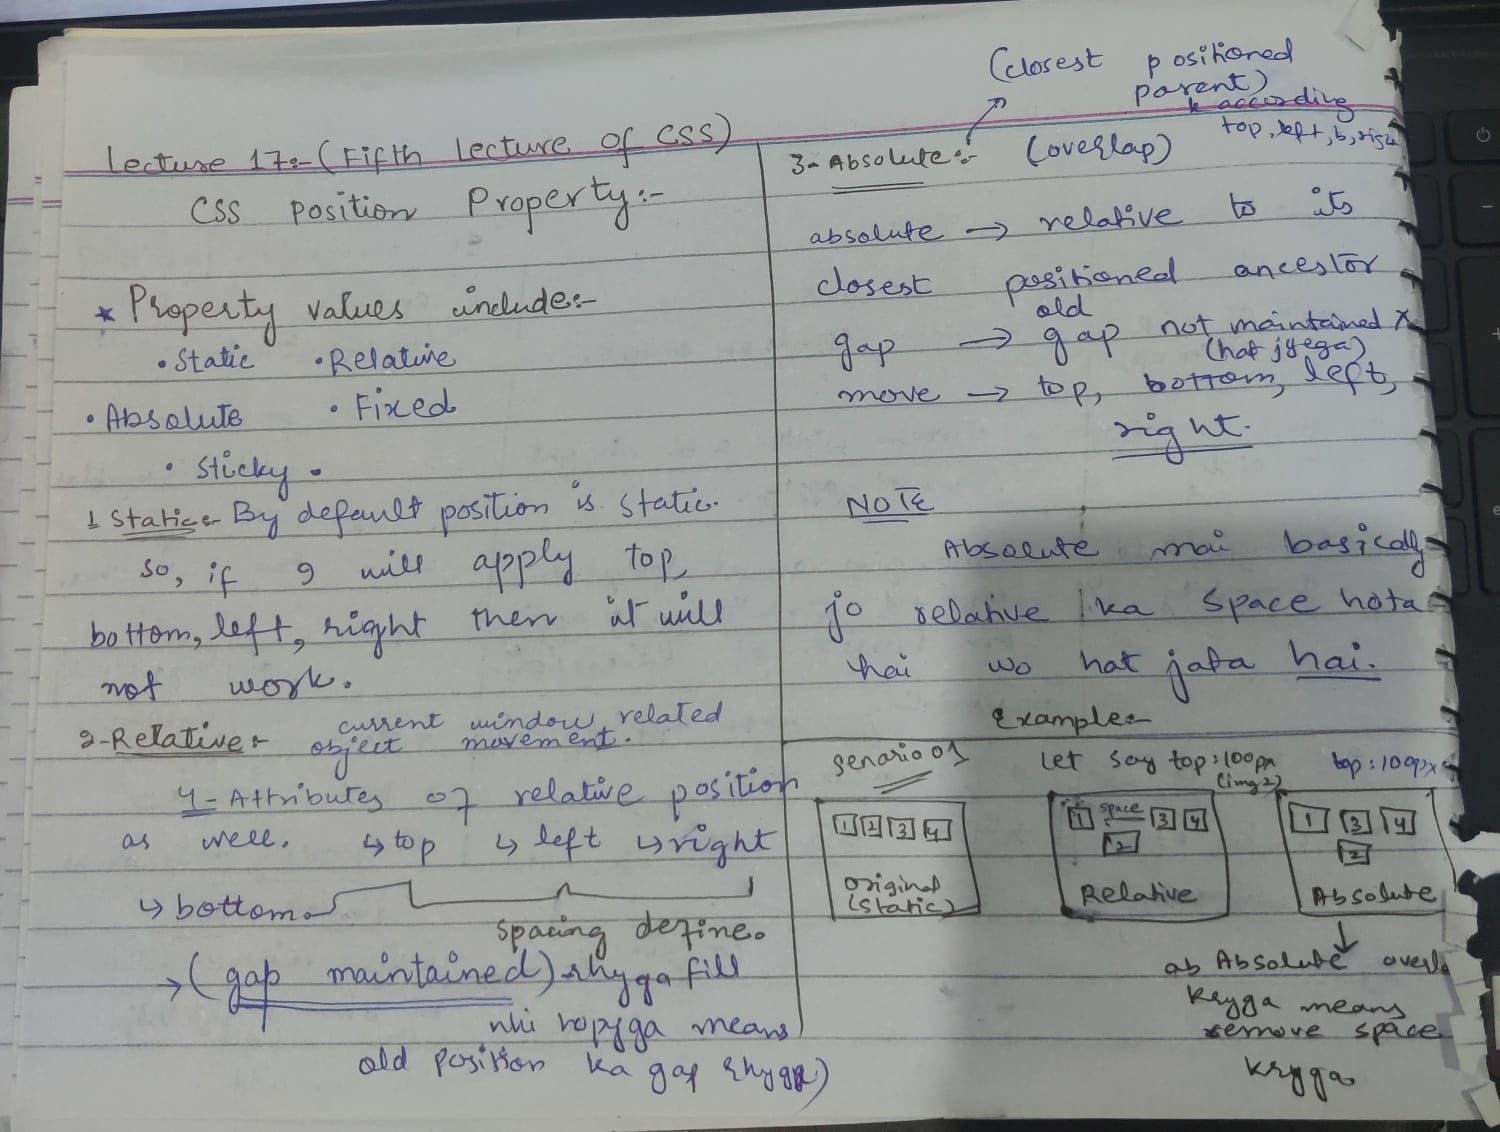 Lecture 17:- (Fifth lecture of CSS)
CSS Position Property:-
* Property values include:-
• Static • Relative
• Absolute • Fixed
• Sticky •
1 Static:- By default position is static.
so, if I will apply top,
bottom, left, right then it will
not work.
2-Relative:- current window related
object movement.
4-Attributes of relative position
as well. ↳ top ↳ left ↳ right
↳ bottom.
spacing define.
→ (gap maintained) rhyga fill
nhi hopyga means
old position ka gap rhyga)
(closest positioned
parent)
k according
top, left, b, right
3- Absolute:- (overlap)
absolute → relative to its
closest positioned ancestor
old
gap → gap not maintained x
(hat jyega)
move → top, bottom, left,
right.
NOTE
Absolute mai basically
jo relative ka space hota
hai wo hat jata hai.
Example:-
senario 01 Let say top:100px top:100px
(img 2)
1 2 3 4
original
(static)
1 space 3 4
2
Relative
1 3 4
2
Absolute
ab Absolute
kryga means
remove space
kryga